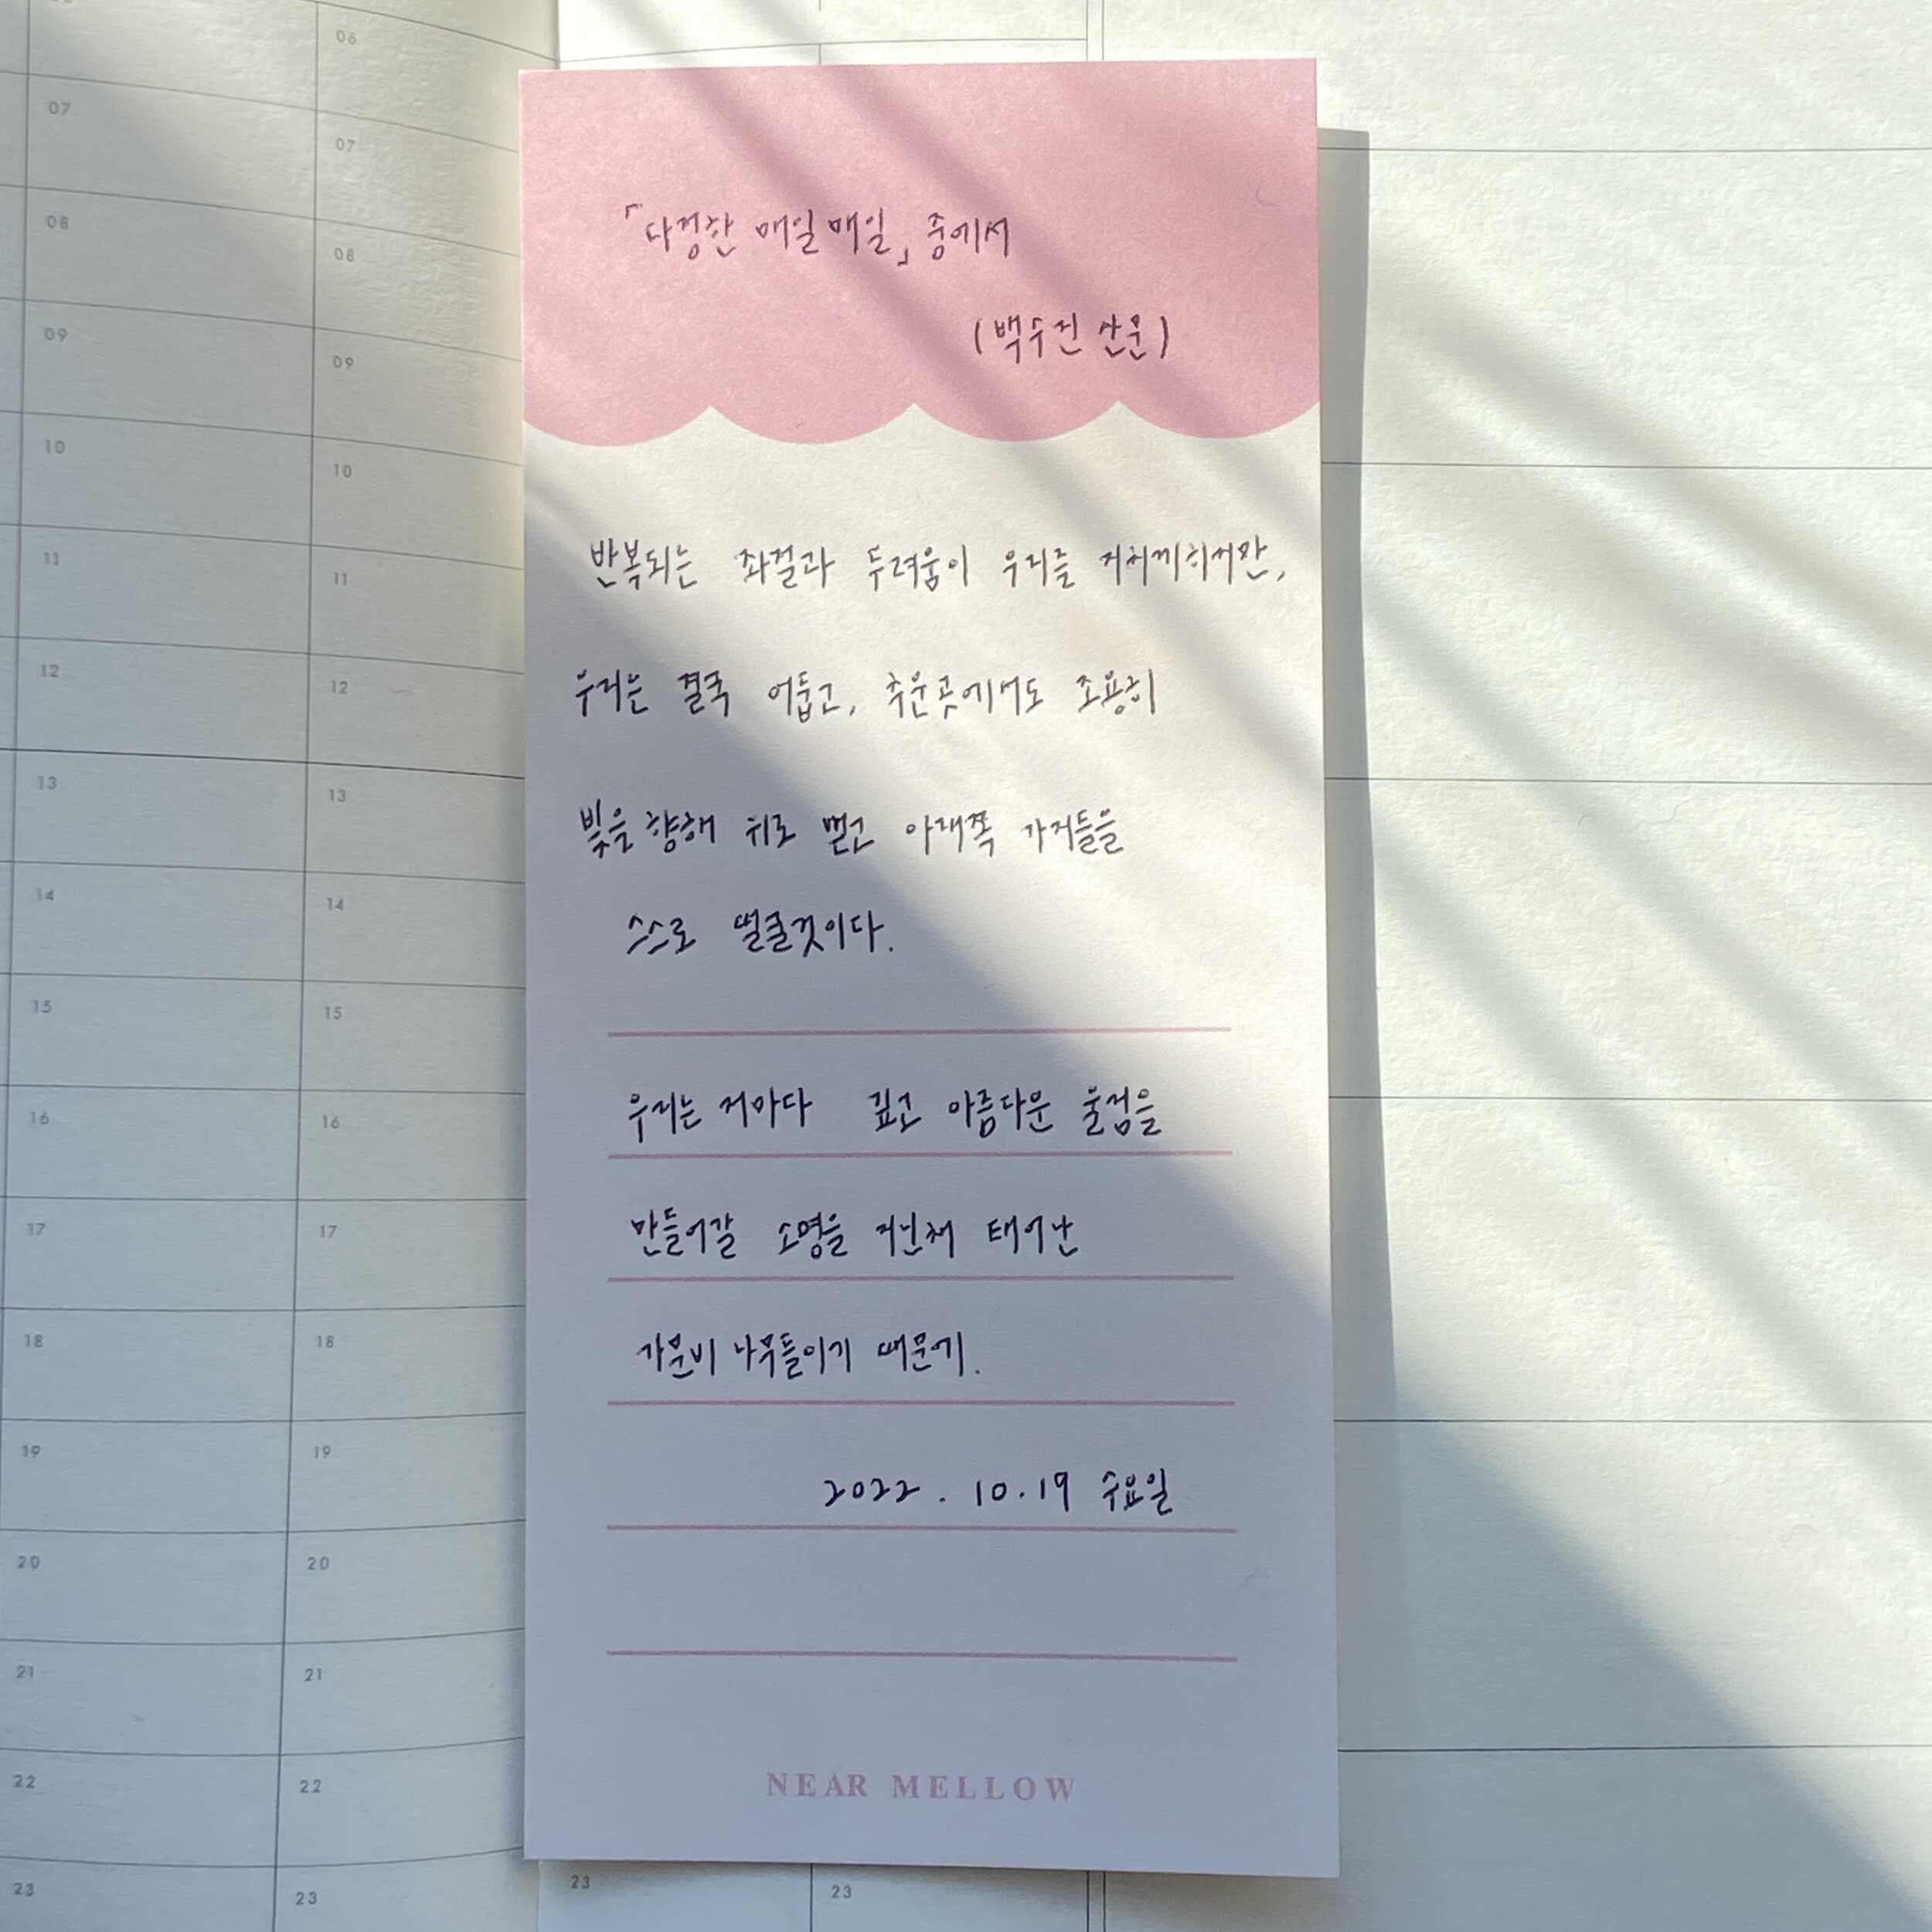 06
07
07
08
08
09
09
10
10
11
11
12
12
13
13
14
14
15
15
16
16
17
17
18
18
19
19
20
20
21
21
22
22
23
23
23
23
「다정한 매일매일」 중에서
(백수진 산문)
반복되는 좌절과 두려움이 우리를 지치게하지만,
우리는 결국 어둡고, 추운곳에서도 조용히
빛을 향해 위로 뻗고 아래쪽 가지들을
스스로 떨굴것이다.
우리는 저마다 깊고 아름다운 울림을
만들어갈 소명을 지닌채 태어난
가문비 나무들이기 때문에.
2022. 10. 19 수요일
NEAR MELLOW